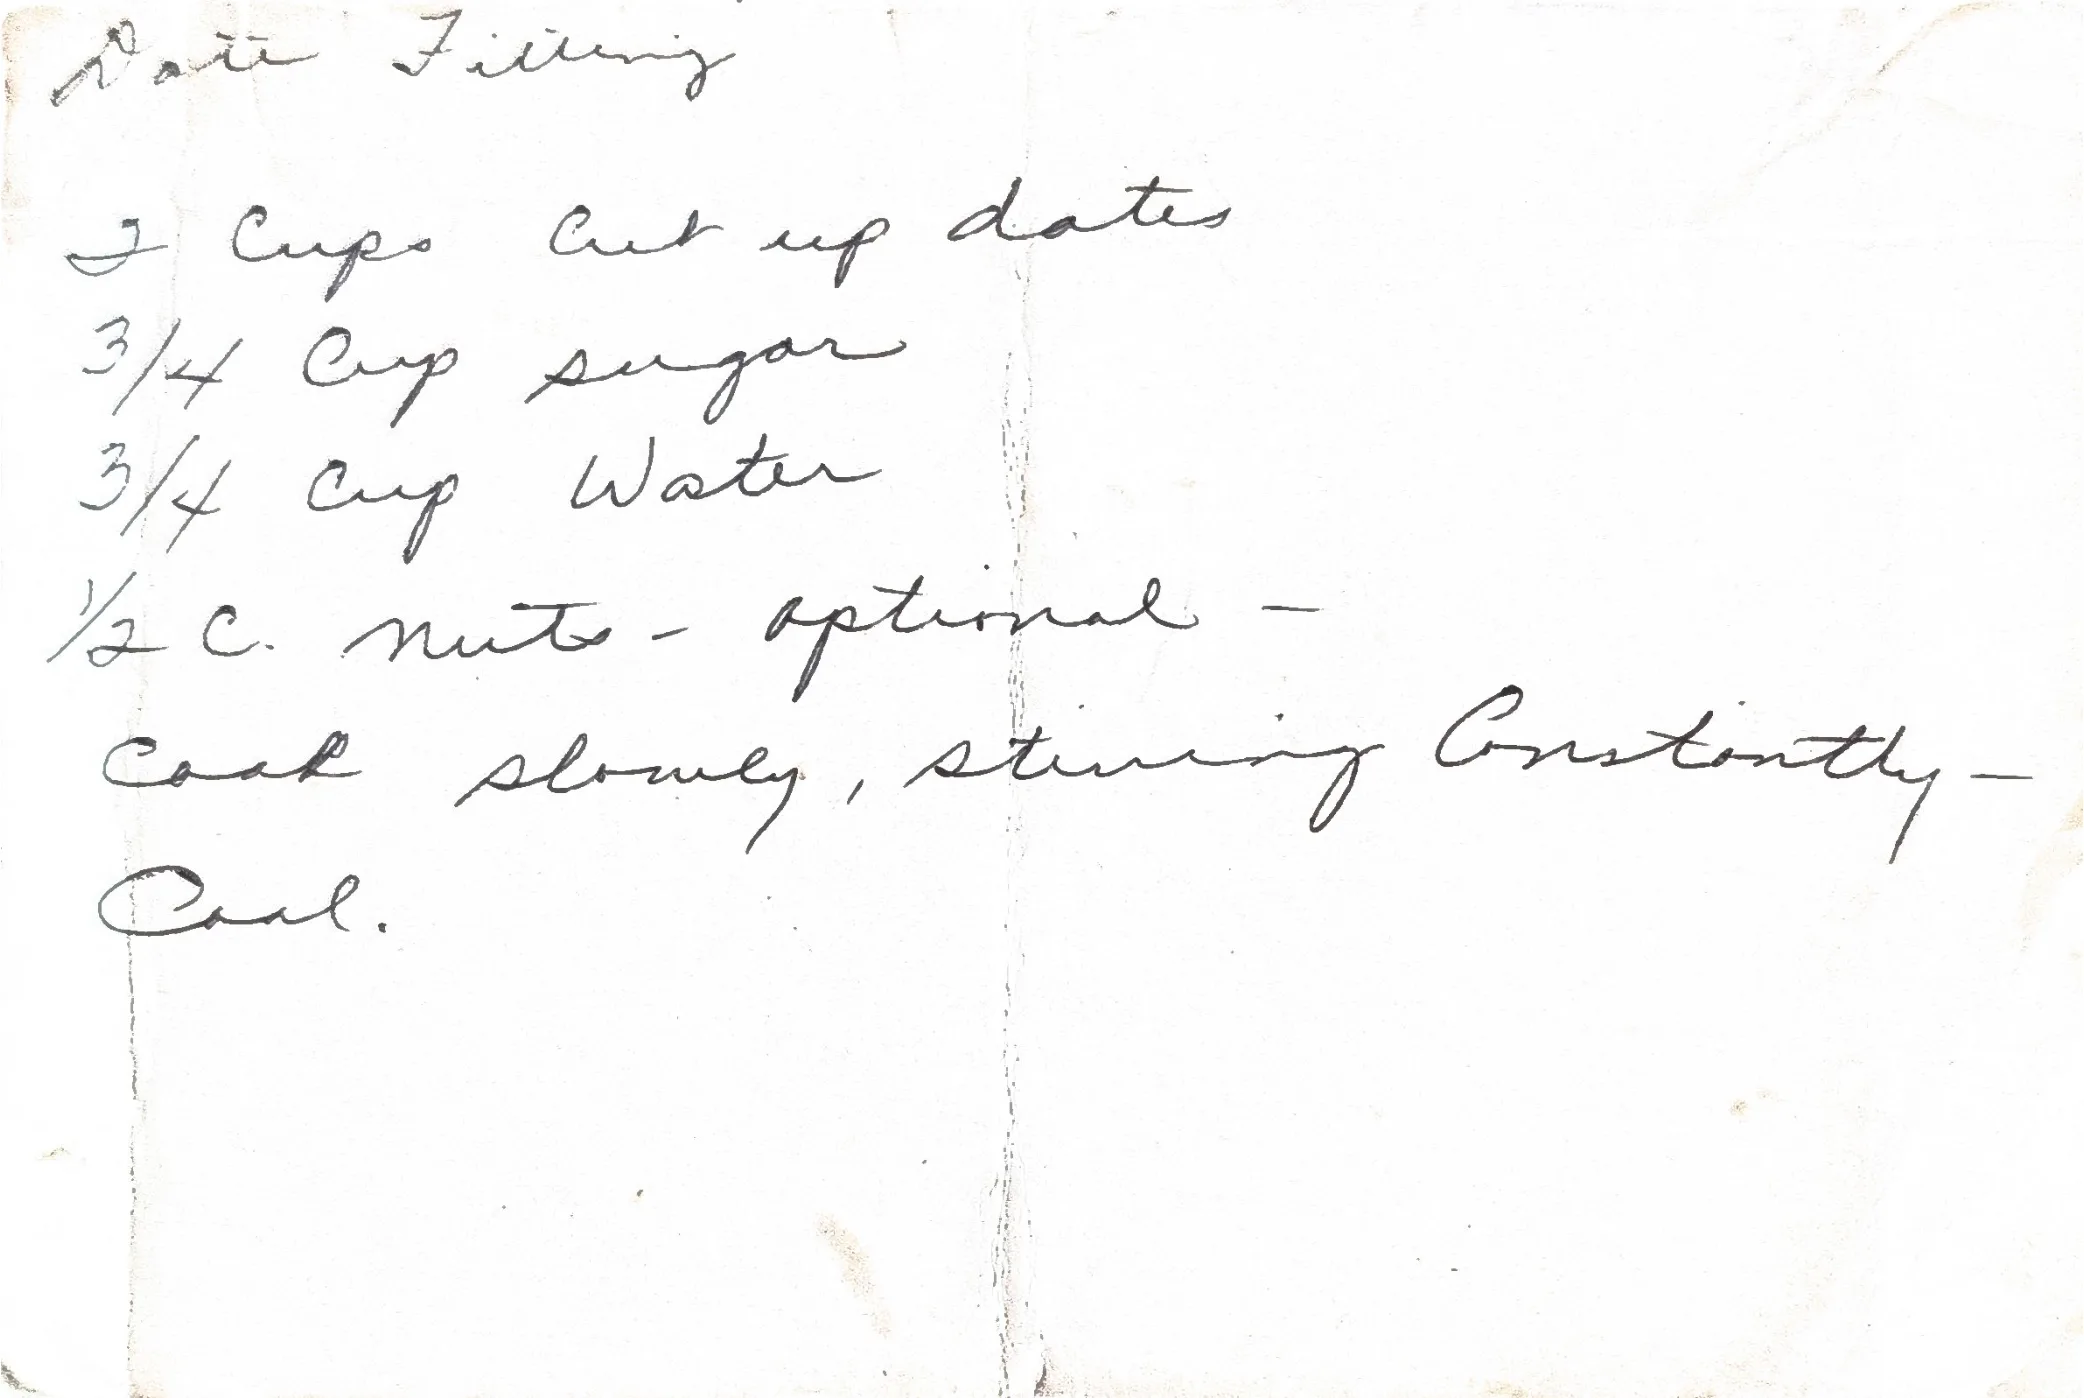 Date Filling
2 Cups Cut up dates
3/4 Cup sugar
3/4 Cup Water
1/2 C. nuts - optional -
Cook slowly, stirring Constantly -
Cool.